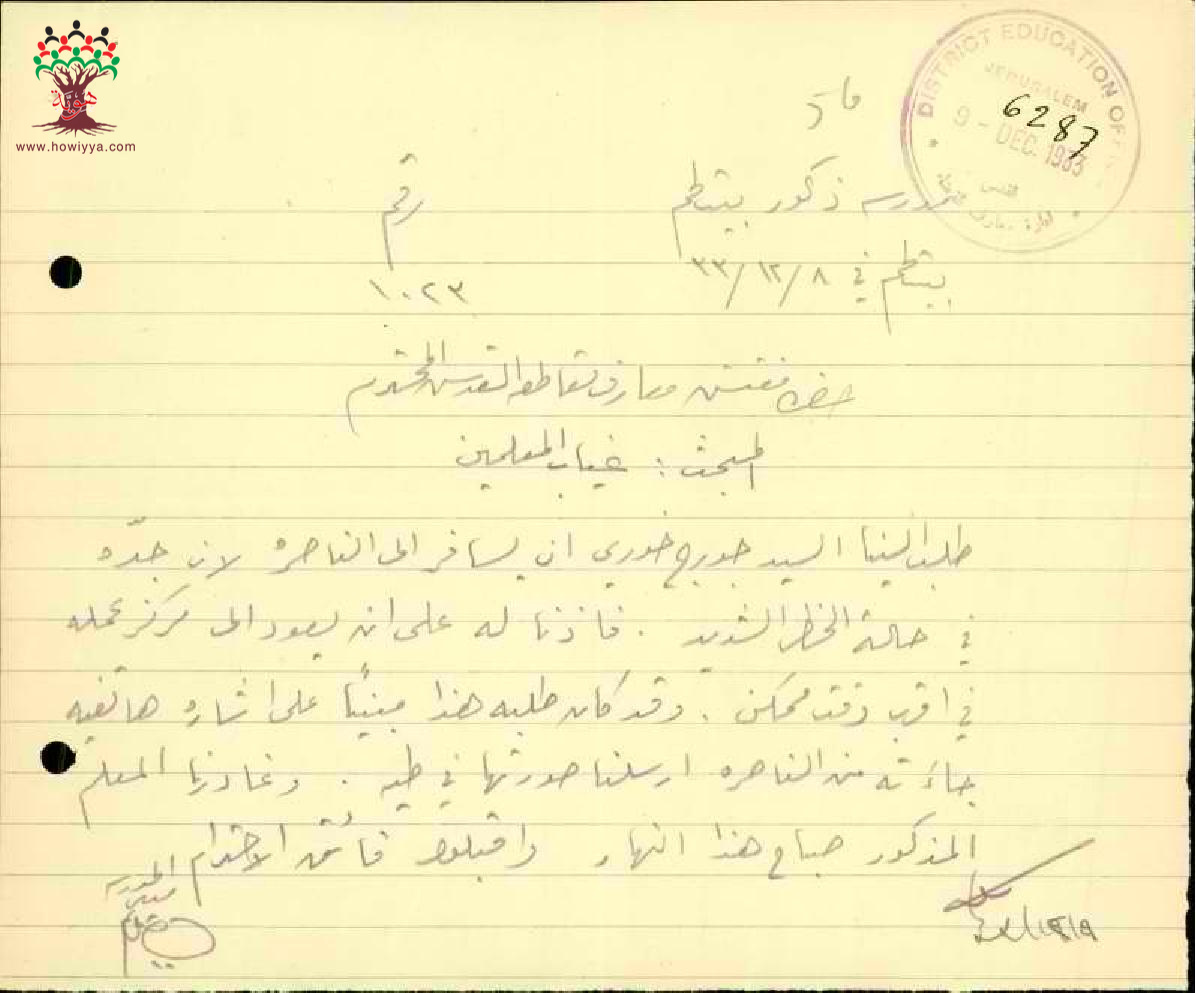 هوية
www.howiyya.com
DISTRICT EDUCATION
JERUSALEM
6287
9 - DEC. 1933
القدس
مدرسه ذكور بيتلحم
رقم
بيتلحم في ٨/١٢/٣٣
١٠٢٣
حضرة مفتش معارف مقاطعة القدس المحترم
المبحث : غياب المعلمين
طلب الينا السيد جورج خوري ان يسافر الى الناصره لان جدّه
في حالة الخطر الشديد . فاذنا له على ان يعود الى مركز عمله
في اقرب وقت ممكن . وقد كان طلبه هذا مبنيًا على اشاره هاتفيه
جاءته من الناصره ارسلنا صورتها في طيه . وغادرنا المعلم
المذكور صباح هذا النهار واقبلوا فائق الاحترام
مدير المدرسه